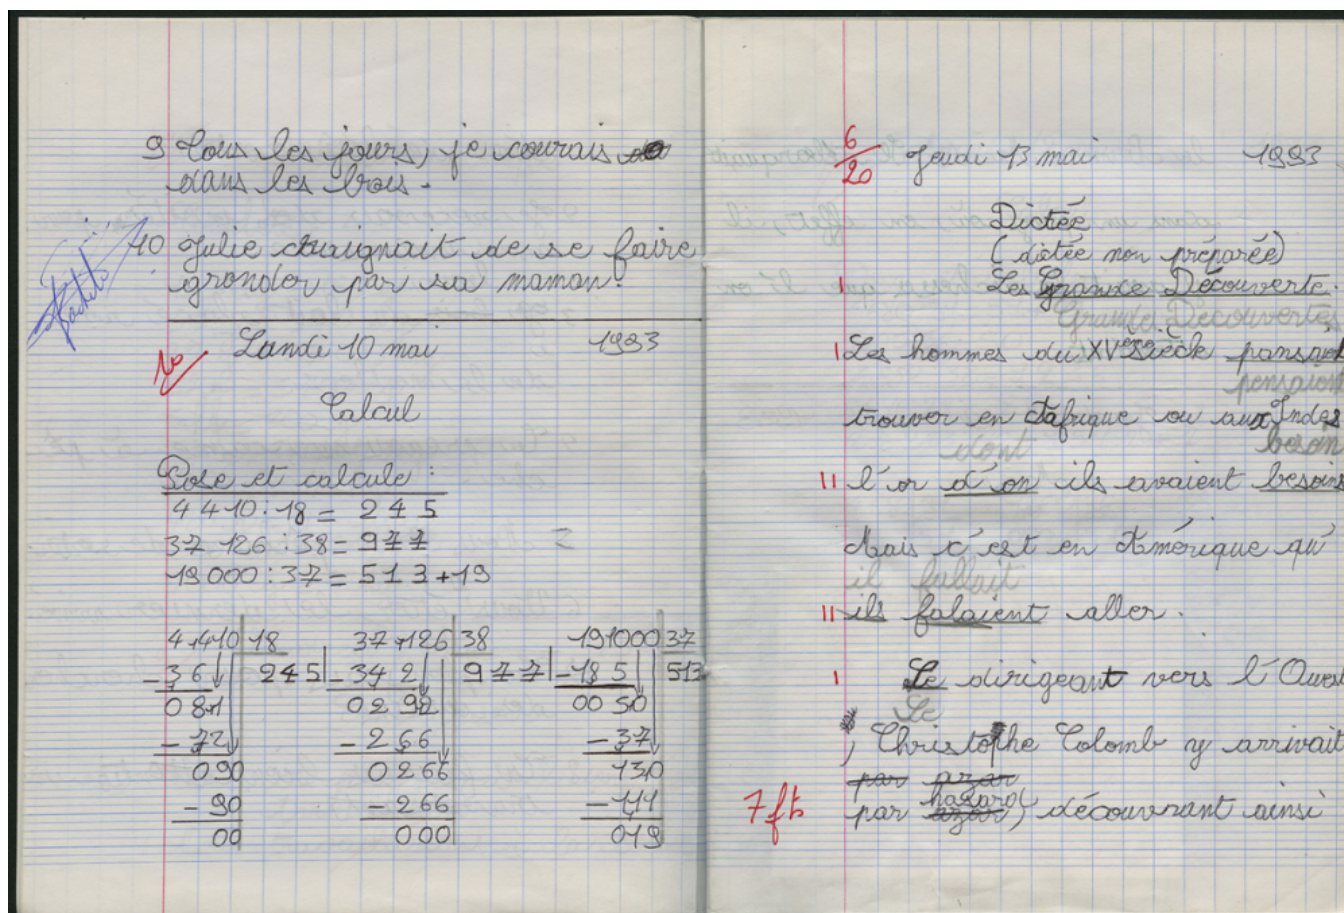 9 Tous les jours, je courais
dans les bois.
10 Julie craignait de se faire
gronder par sa maman.
Lundi 10 mai 1993
10
Calcul
Pose et calcule :
4 410 : 18 = 245
37 126 : 38 = 977
19 000 : 37 = 513 + 19
4,410 18 37,126 38 191000 37
- 36 245 - 342 977 - 18 5 513
081 0292 00 50
- 72 - 266 - 37
090 0266 130
- 90 - 266 - 111
00 000 019
6/20 Jeudi 13 mai 1993
Dictée
(dictée non préparée)
I Les Grande Découverte.
Grandes Découvertes
I Les hommes du XVème siècle pansait
pensaient
trouver en Afrique ou aux Indes
dont besoin
II l'or d'on ils avaient besoins
Mais c'est en Amérique qu'
il fallait
II ils falaient aller.
I Le dirigeant vers l'Ouest
Se
, Christophe Colomb y arrivait
par azar
hazard
7 fts par azar, découvrant ainsi